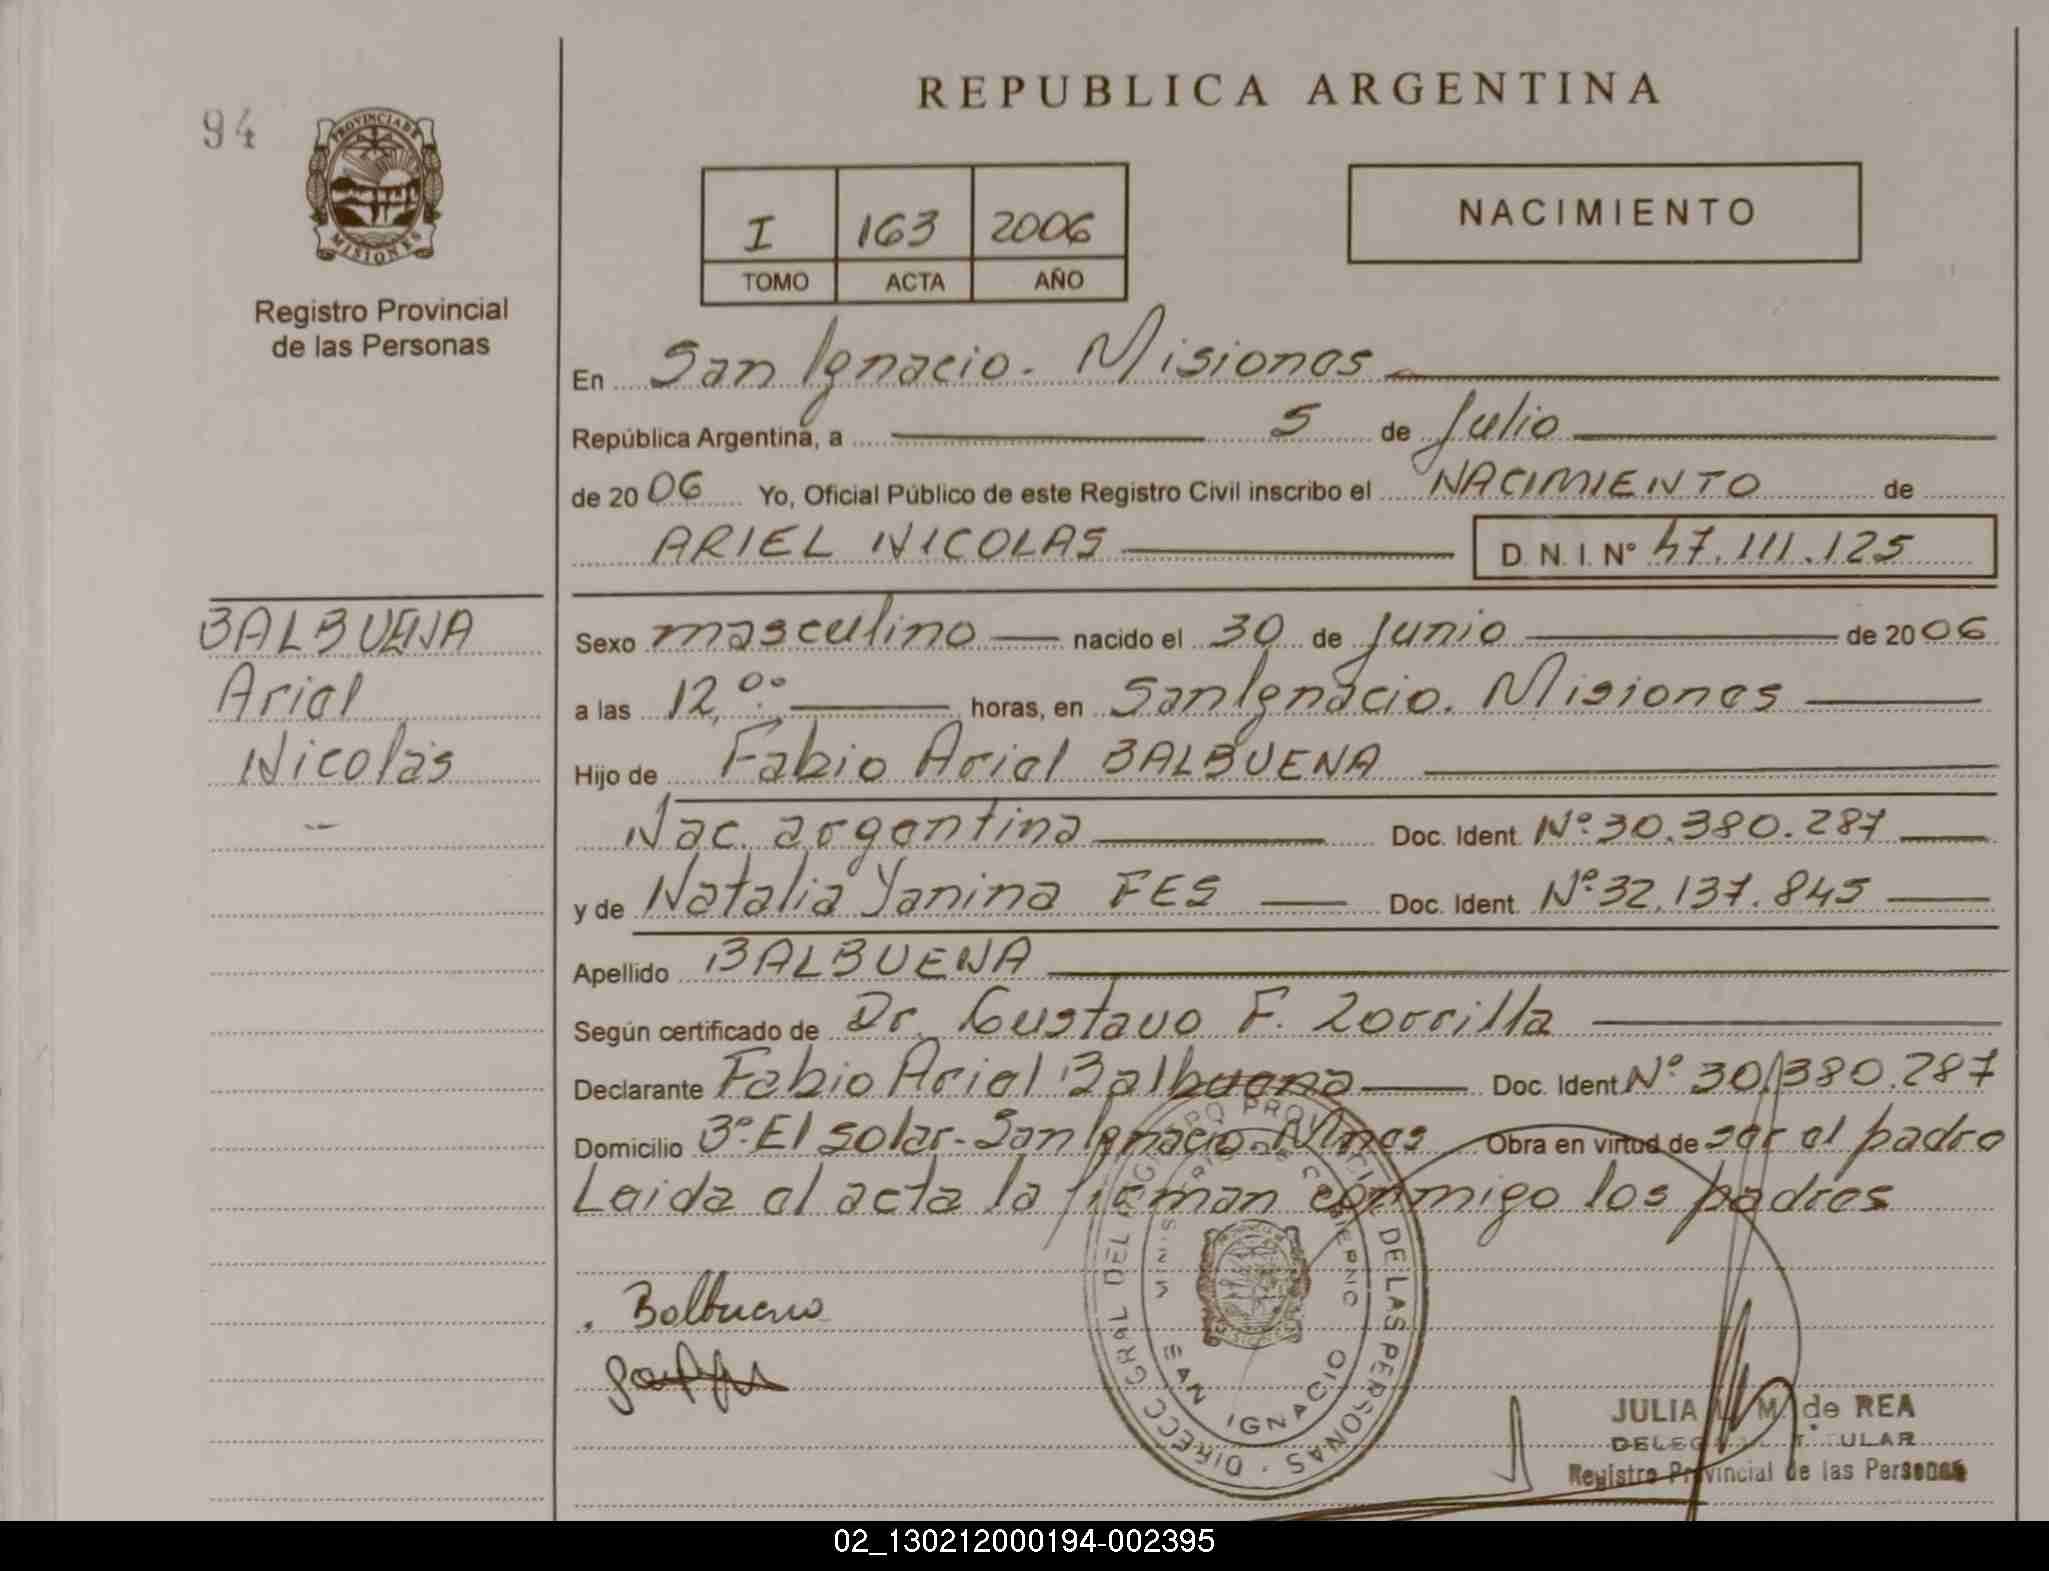 94
PROVINCIA DE
MISIONES
Registro Provincial
de las Personas
REPUBLICA ARGENTINA
I 163 2006
TOMO ACTA AÑO
NACIMIENTO
En San Ignacio. Misiones
República Argentina, a 5 de Julio
de 2006 Yo, Oficial Público de este Registro Civil inscribo el NACIMIENTO de
ARIEL NICOLAS D. N. I. Nº 47.111.125
BALBUENA
Ariel
Nicolás
Sexo masculino nacido el 30 de Junio de 2006
a las 12,00. horas, en San Ignacio. Misiones
Hijo de Fabio Ariel BALBUENA
Nac. argentina Doc. Ident. Nº.30.380.287
y de Natalia Yanina FES Doc. Ident. Nº.32.137.845
Apellido BALBUENA
Según certificado de Dr. Gustavo F. Zorrilla
Declarante Fabio Ariel Balbuena Doc. Ident. Nº 30.380.287
Domicilio Bº. El solar - San Ignacio. Mnes Obra en virtud de ser el padre
Leida el acta la firman conmigo los padres
Balbuena
DIRECC GRAL DEL REGISTRO PROVINCIAL DE LAS PERSONAS
SAN IGNACIO
JULIA L. M. de REA
DELEGADA TITULAR
Registro Provincial de las Personas
02_130212000194-002395